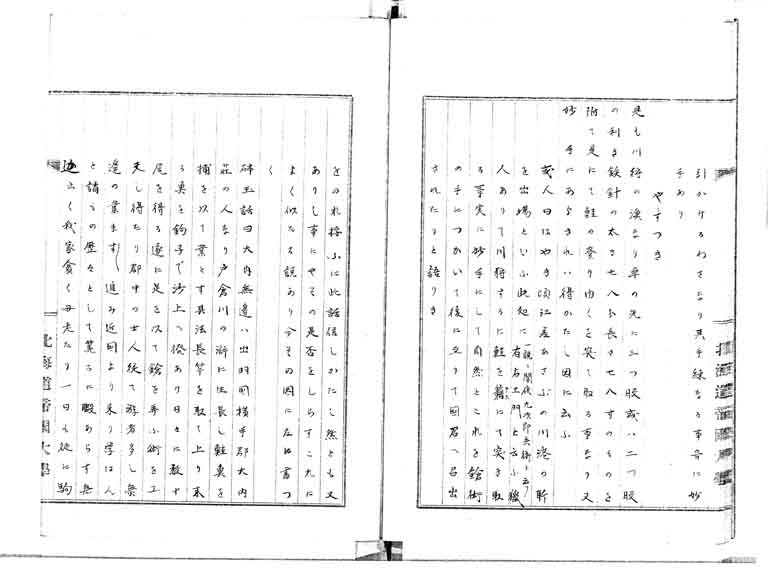 引かけるわさなり其手練なる事奇に妙
手あり
やすつき
是も川狩の漁なり竿の先に三つ股或ハ二つ股
の利き鉄針の太さ七八分長さ七八寸のものを
附て是にて鮭の登り行くを突て取る事なり又
妙手にあらされハ得かたし因に云ふ
或人曰はやき頃仁差あさふの川港の斬
を出場といふ此処に有右エ門と云ふ猟
一説ニ間伏九次郎兵衛ト云フ
人ありて川狩するに鮭を籍にて突き取
る事実に妙手にして自然とこれを鎗術
の手につかいて後に立りて国君へ召出
されたりと語りき
をのれ按ふに此話信しかたし然とも又
ありし事にやその是否をしらすこれに
よく似たる説あり今その因に左に書つ
く
砕玉話曰大内無邊ハ出羽国横手郡大内
荘の人なり戸倉川の滸に生長し鮭魚を
捕を以て業とす其法長竿を取て上り来
る魚を鉤子で沙上へ揆あり日々に数十
尾を得る遂に是を以て鎗を弄ふ術を工
夫し得たり郡中の士人従て遊者多し無
邊の業ますし遠み近国より来り学はん
と請ふの歴々として篤ろに暇あらす無
邊曰く我家貧く母老たり一日も徒に駒
北海道帝国大学